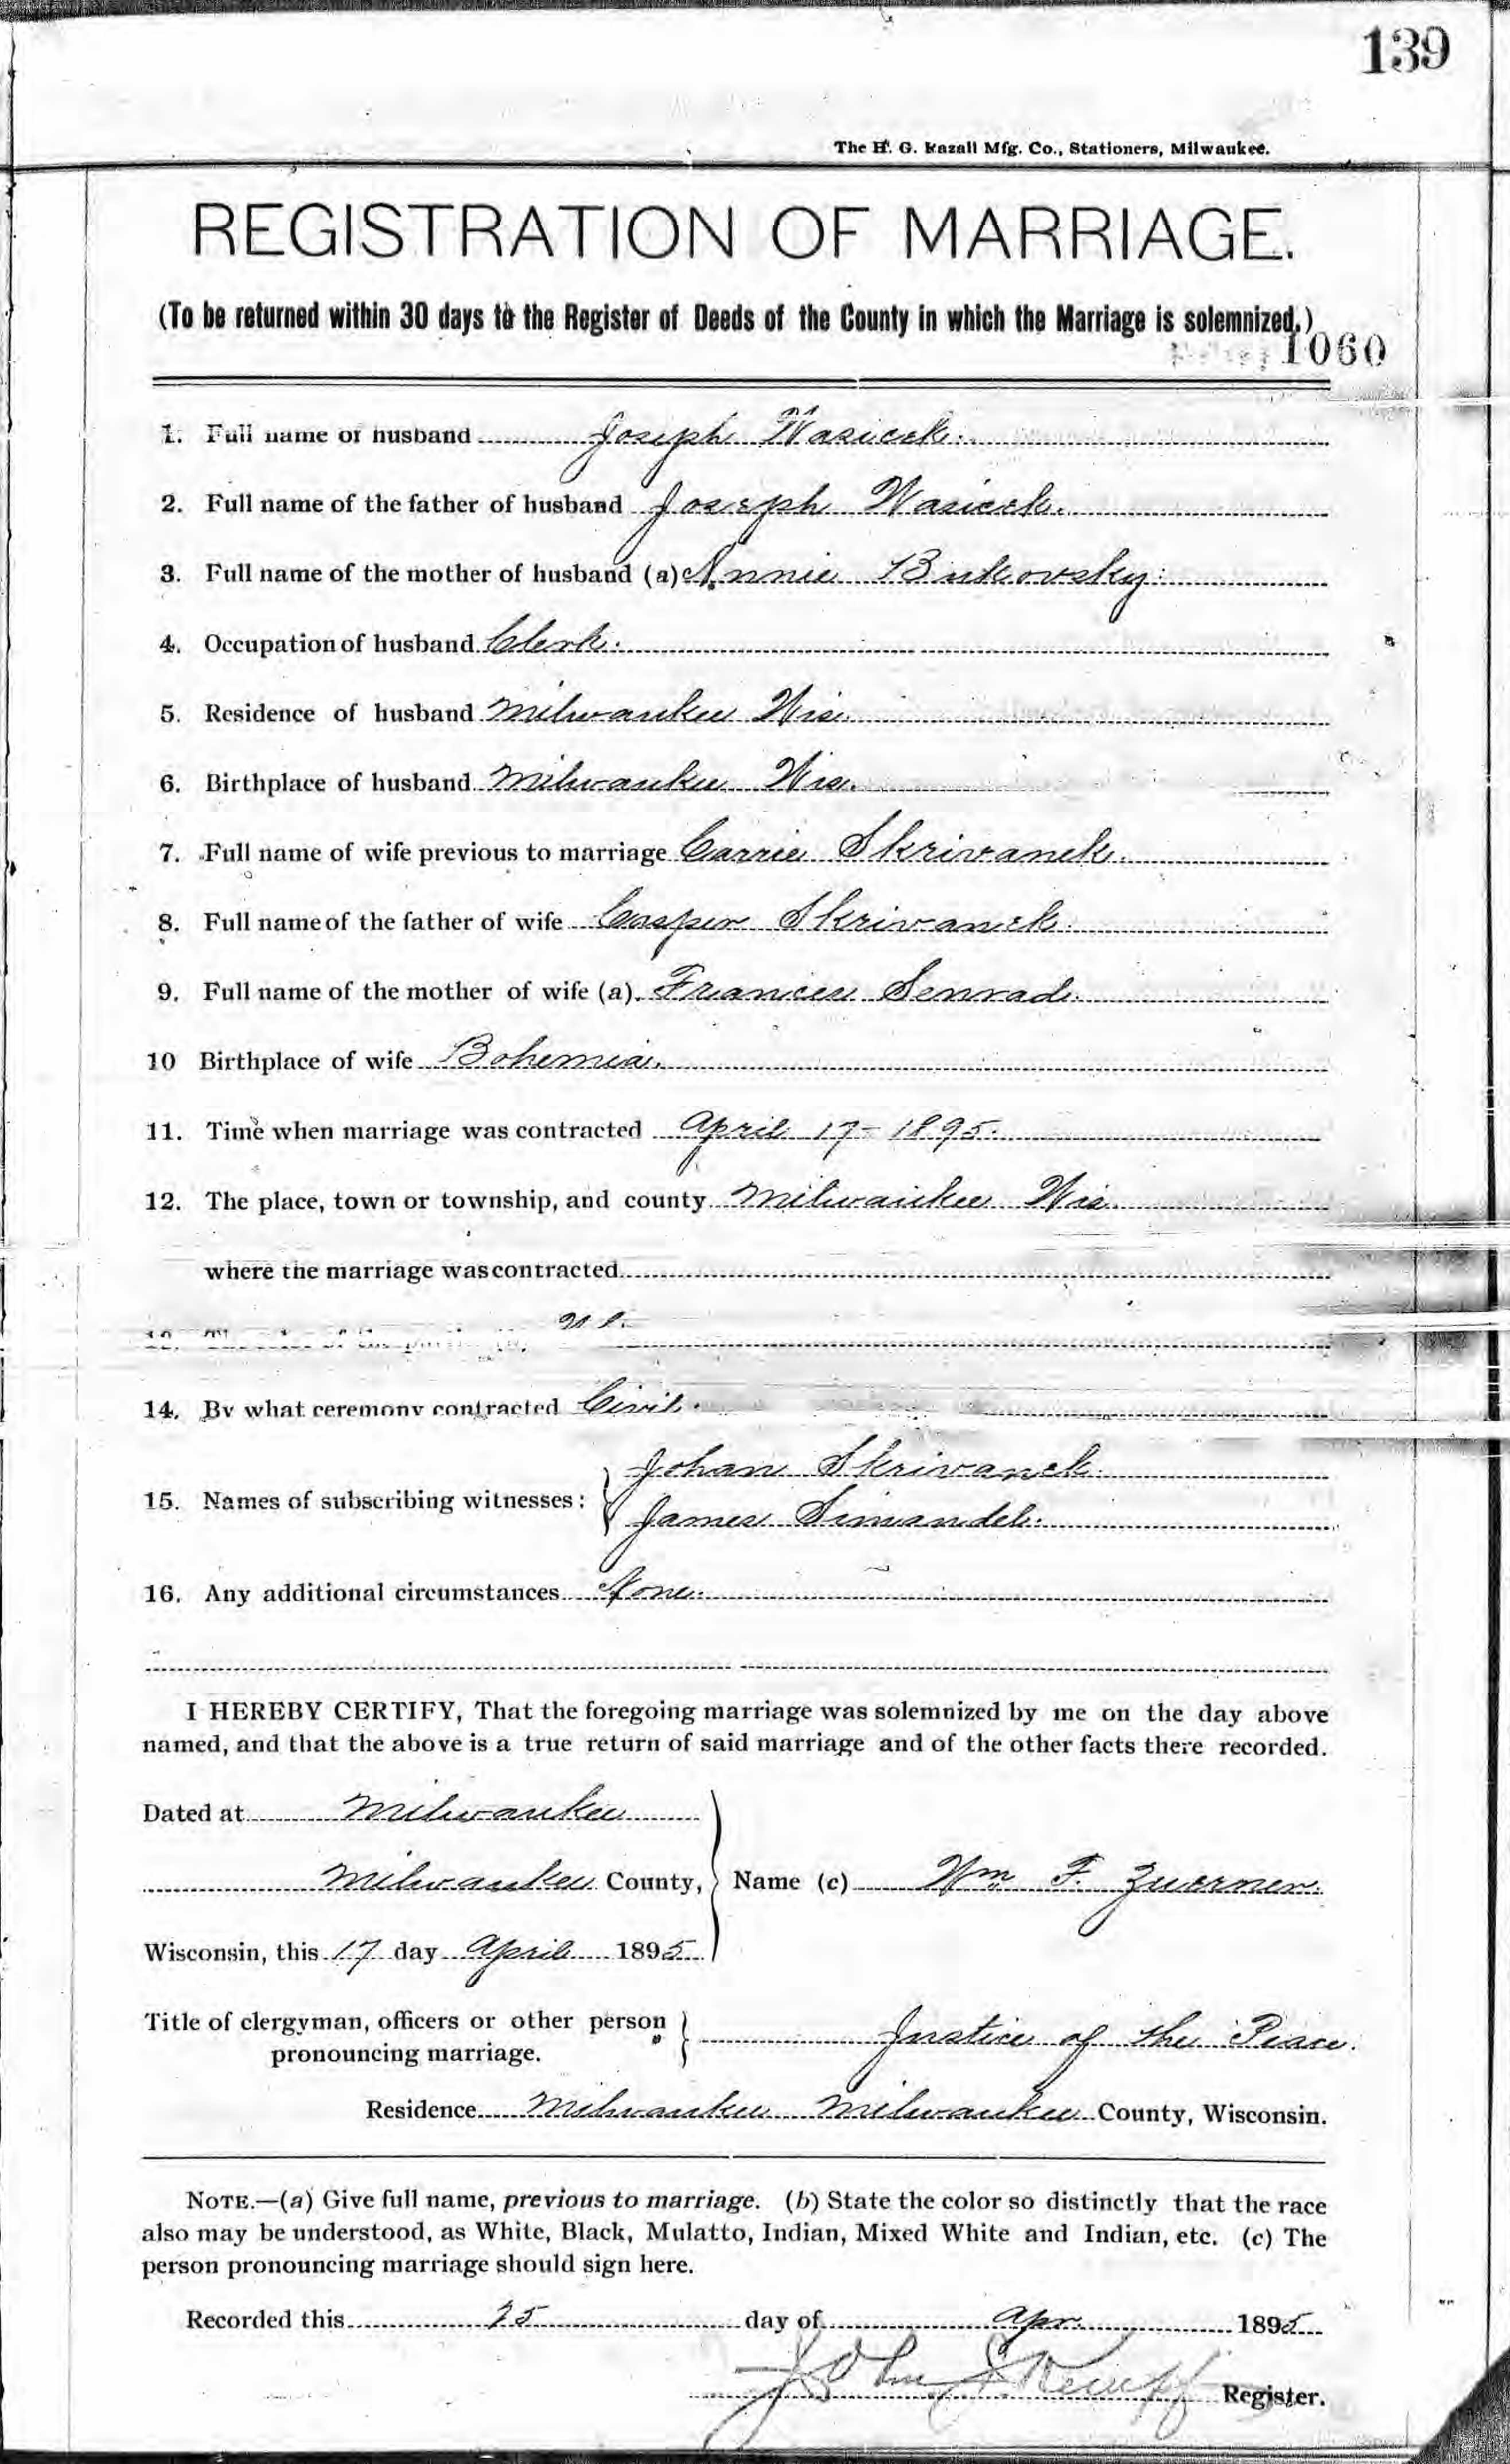 139
The H. G. Razall Mfg. Co., Stationers, Milwaukee.
REGISTRATION OF MARRIAGE.
(To be returned within 30 days to the Register of Deeds of the County in which the Marriage is solemnized.)
1060
1. Full name of husband Joseph Wasicek.
2. Full name of the father of husband Joseph Wasicek.
3. Full name of the mother of husband (a) Annie Bukowsky.
4. Occupation of husband Clerk.
5. Residence of husband Milwaukee Wis.
6. Birthplace of husband Milwaukee Wis.
7. Full name of wife previous to marriage Carrie Skrivanek.
8. Full name of the father of wife Casper Skrivanek.
9. Full name of the mother of wife (a). Frances Senrad.
10 Birthplace of wife Bohemia.
11. Time when marriage was contracted April 17- 1895.
12. The place, town or township, and county Milwaukee Wis.
where the marriage was contracted
14. By what ceremony contracted Civil.
Johan Skrivanek.
15. Names of subscribing witnesses:
James Simandel.
16. Any additional circumstances None.
I HEREBY CERTIFY, That the foregoing marriage was solemnized by me on the day above
named, and that the above is a true return of said marriage and of the other facts there recorded.
Dated at Milwaukee
Milwaukee County, Name (c) Wm F. Zuerner.
Wisconsin, this 17 day April 1895
Title of clergyman, officers or other person
pronouncing marriage. Justice of the Peace.
Residence Milwaukee Milwaukee County, Wisconsin.
NOTE.—(a) Give full name, previous to marriage. (b) State the color so distinctly that the race
also may be understood, as White, Black, Mulatto, Indian, Mixed White and Indian, etc. (c) The
person pronouncing marriage should sign here.
Recorded this 25 day of Apr. 1895
John Register.